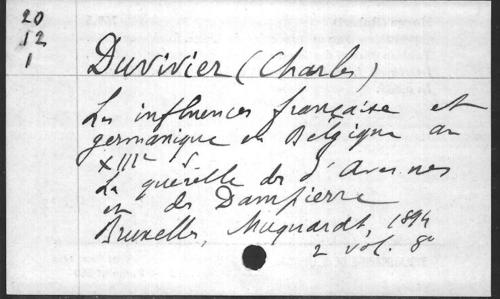 20
12
1
Duvivier (Charles)
Les influences française et
germanique en Belgique au
XIIIe s
La querelle des d'Avesnes
et des Dampierre
Bruxelles, Muquardt, 1894
2 vol. 8°